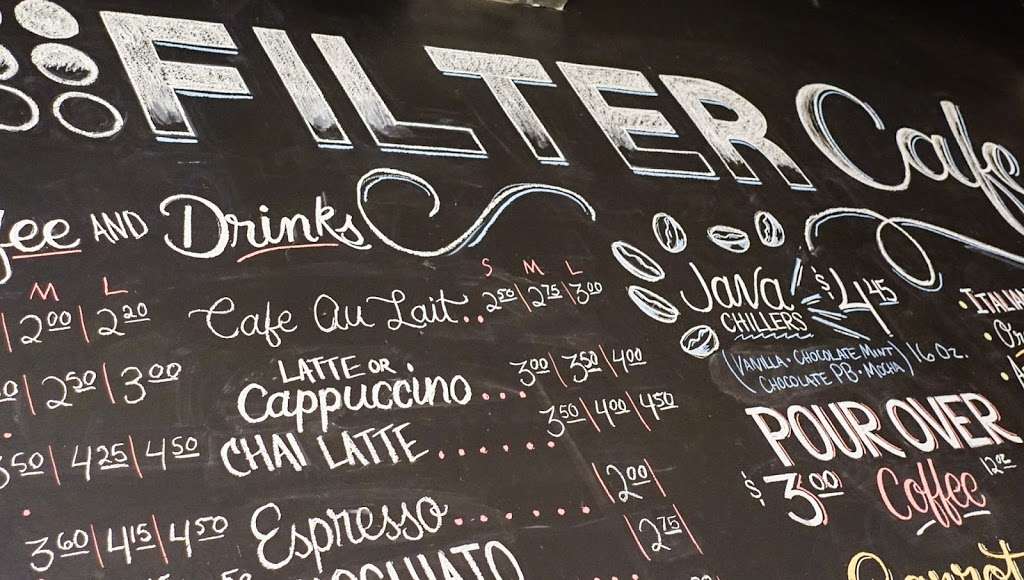 FILTER Cafe
AND Drinks
M L
2.00 | 2.20
2.50 | 3.00
4.25 | 4.50
3.60 | 4.15 | 4.50
S M L
Cafe Au Lait.. 2.50 | 2.75 | 3.00
LATTE OR
Cappuccino... 3.00 | 3.50 | 4.00
CHAI LATTE...... 3.50 | 4.00 | 4.50
Espresso....... | 2.00 |
| 2.75 |
JAVA $4.45
CHILLERS
(VANILLA · CHOCOLATE MINT
CHOCOLATE PB · MOCHA) 16 OZ.
POUR OVER
$3.00 Coffee 12 oz